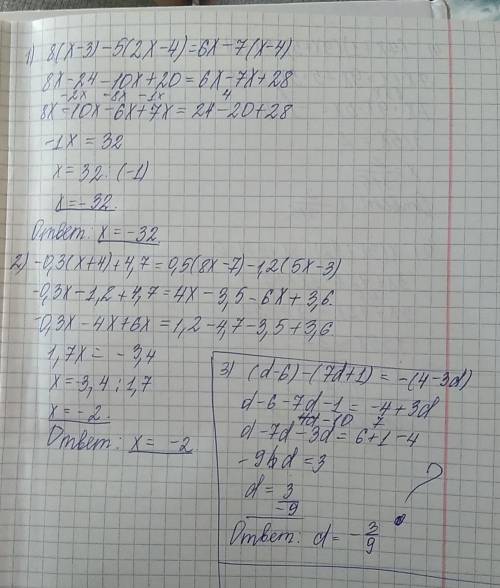 1) 8(x-3)-5(2x-4)=6x-7(x-4)
8x-24-10x+20=6x-7x+28
-2x -8x -1x 4
8x-10x-6x+7x=24-20+28
-1x=32
x=32:(-1)
x=-32.
Ответ: x=-32.
2) -0,3(x+4)+4,7=0,5(8x-7)-1,2(5x-3)
-0,3x-1,2+4,7=4x-3,5-6x+3,6.
-0,3x-4x+6x=1,2-4,7-3,5+3,6.
1,7x=-3,4
x=-3,4:1,7
x=-2.
Ответ: x=-2.
3) (d-6)-(7d+1)=-(4-3d)
d-6-7d-1=-4+3d
7
d-7d-3d=6+1-4
-9d=3
d=3/-9
?
Ответ: d=-3/9